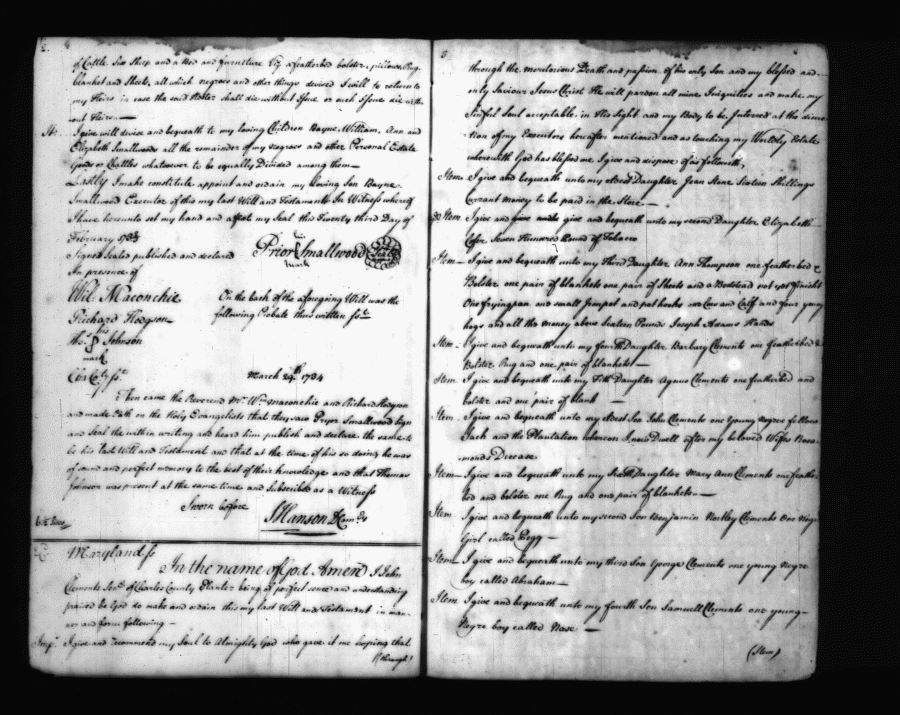 of Cattle Six Sheep and a Bed and furniture Viz a featherbed bolster, pillows Rug,
blanket and Sheets, all which negroes and other things devised I will to return to
my Heirs in case the said Hester shall die without Issue or such Issue die with
out Heirs.—
It. I give will devise and bequeath to my loving Children Bayne, William, Ann and
Elizabeth Smallwoods all the remainder of my negroes and other Personal Estate
Goods or Chattles whatsoever to be equally Divided among them—
Lastly I make constitute appoint and ordain my loving Son Bayne
Smallwood Executor of this my last Will and Testament In Witness whereof
I have hereunto set my hand and affixt my Seal this Twenty third Day of
February 1733
Signed Sealed published and declared
In presence of
his
Prior Smallwood Seal
mark
Wil. Maconchie
Richard Hodgson
his
Thos. Johnson
mark
On the back of the aforegoing Will was the
following Probate thus written sst
Chs Cty sst.
March 29th 1734
Then came the Reverend Mr. Wm. Maconchie and Richard Hodgson
and made Oath on the Holy Evangelists that they saw Pryor Smallwood Sign
and Seal the within writing and heard him publish and declare the same to
be his last Will and Testament and that at the time of his so doing he was
of sound and perfect memory to the best of their knowledge and that Thomas
Johnson was present at the same time and Subscribed as a Witness
Sworn before
S Hanson DComry
Maryland ss
In the name of God Amen I John
Clements Senr. of Charles County Planter being of perfect sence and understanding
praised be God do make and ordain this my last Will and Testament in man-
ner and form following —
Imps. I give and recommend my Soul to Almighty God who gave it me hoping that
(through)
3
through the meritorious Death and passion of his only Son and my blessed and
only Saviour Jesus Christ He will pardon all mine Iniquities and make my
Sinful Soul acceptable in His Sight and my Body to be Interred at the discre-
tion of my Executors hereafter mentioned and as touching my Worldly Estate
wherewith God has blessed me I give and dispose of as followeth,
Item I give and bequeath unto my Eldest Daughter Jean Stone Sixteen Shillings
Currant money to be paid in the Store —
Item I give and give and bequeath unto my second Daughter Elizabeth
Seven Hundred Pound of Tobacco
Item— I give and bequeath unto my Third Daughter Ann Thompson one featherbed &
Bolster one pair of blankets one pair of Sheets and a Bedstead not yet finisht
One fryingpan one small Jampot and pot hooks one Cow and Calf and four young
hogs and all the money above Sixteen Pounds Joseph Adams Hands
Item— I give and bequeath unto my fourth Daughter Barbary Clements one featherbed &
Bolster Rug and one pair of blankets—
Item I give and bequeath unto my Fifth Daughter Agnus Clements one featherbed and
bolster and one pair of blank —
Item I give and bequeath unto my Eldest Son John Clements one Young Negro fellow
Jack and the Plantation whereon I now Dwell after my beloved Wifes
Decease
Item— I give and bequeath unto my Sixth Daughter Mary Ann Clements one feather-
bed and bolster one Rug and one pair of blankets—
Item I give and bequeath unto my second Son Benjamin Notley Clements One Negro
Girl called Pegg —
Item— I give and bequeath unto my third Son George Clements one young Negro
boy called Abraham—
Item I give and bequeath unto my fourth Son Samuell Clements one young
Negro boy called Nase —
(Item)